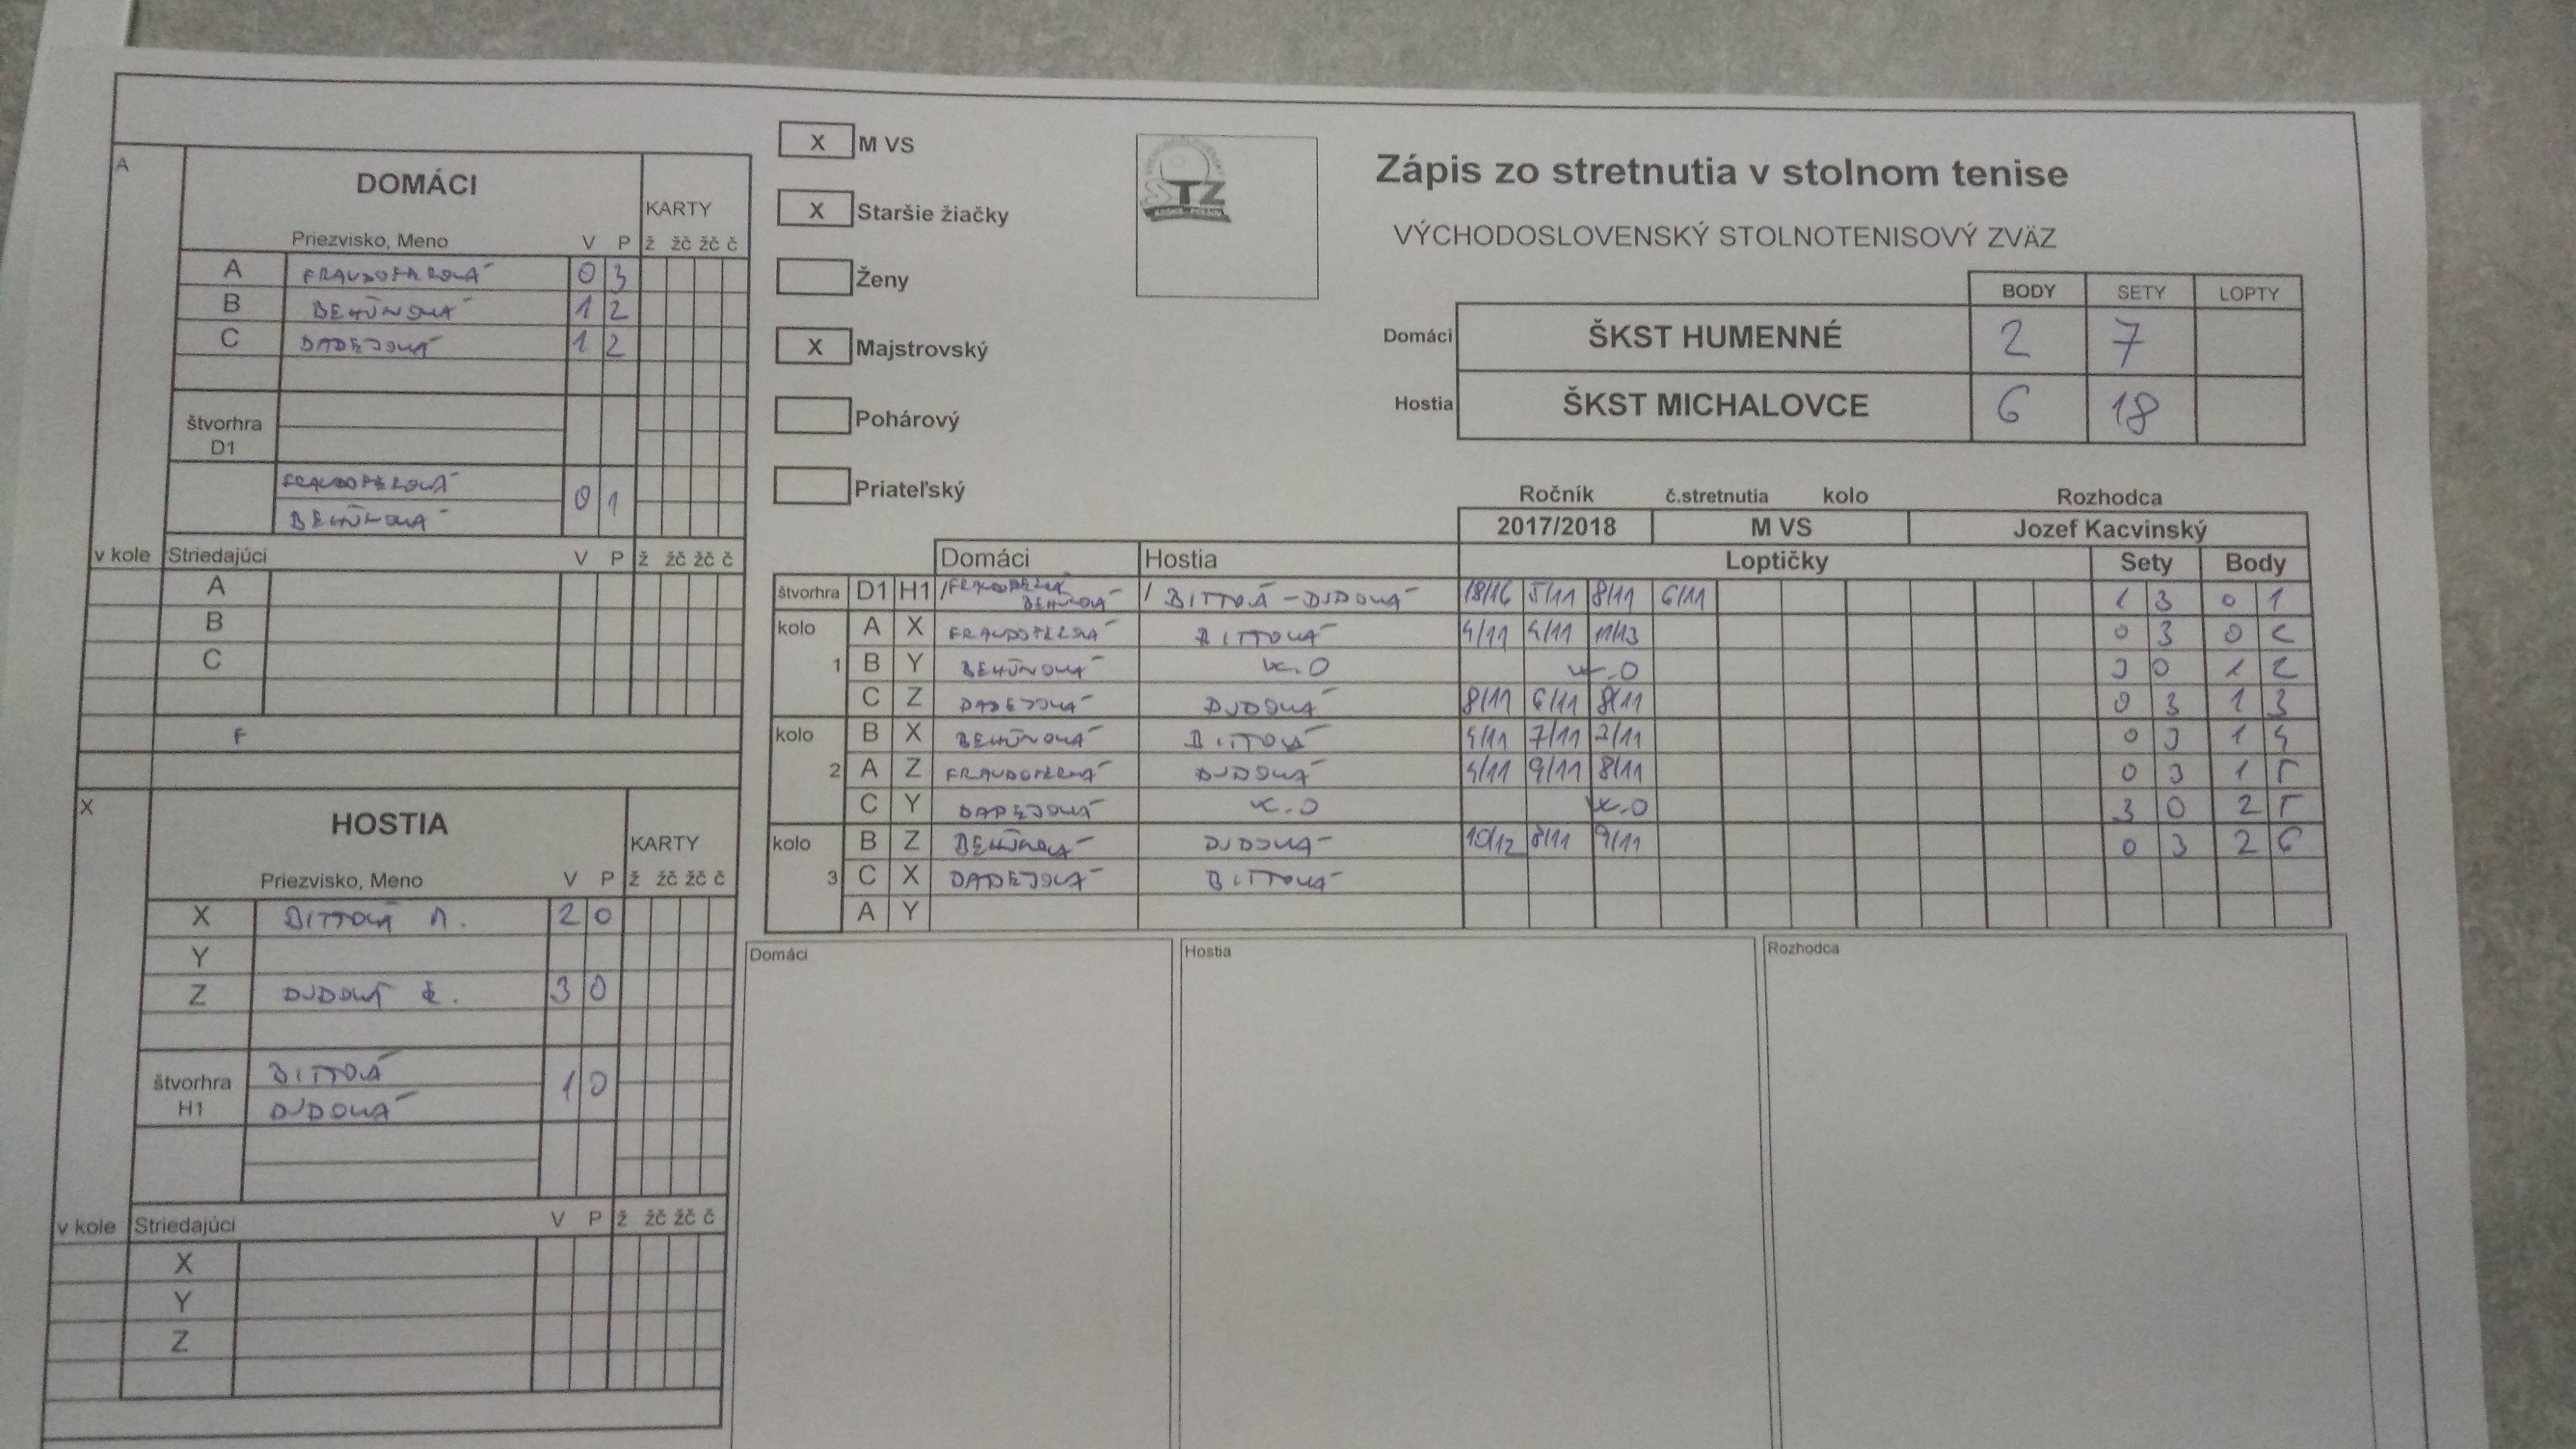 Zápis zo stretnutia v stolnom tenise
VÝCHODOSLOVENSKÝ STOLNOTENISOVÝ ZVÄZ
STZ
X M VS
X Staršie žiačky
Ženy
X Majstrovský
Pohárový
Priateľský
BODY SETY LOPTY
Domáci ŠKST HUMENNÉ 2 7
Hostia ŠKST MICHALOVCE 6 18
Ročník č.stretnutia kolo Rozhodca
2017/2018 M VS Jozef Kacvinský
A
DOMÁCI KARTY
Priezvisko, Meno V P ž žč žč č
A 0 3
B BEHÚNOVÁ 1 2
C DADEJOVÁ 1 2
štvorhra
D1
0 1
BEHÚNOVÁ
v kole Striedajúci V P ž žč žč č
A
B
C
F
X
HOSTIA KARTY
Priezvisko, Meno V P ž žč žč č
X BITTOVÁ 2 0
Y
Z DUDOVÁ 3 0
štvorhra H1
BITTOVÁ
DUDOVÁ
1 0
v kole Striedajúci V P ž žč žč č
X
Y
Z
Domáci Hostia Loptičky Sety Body
štvorhra D1 H1 / BEHÚNOVÁ / BITTOVÁ - DUDOVÁ 18/16 5/11 8/11 6/11 1 3 0 1
kolo 1 A X BITTOVÁ 4/11 4/11 11/13 0 3 0 2
B Y BEHÚNOVÁ w.o w.o 3 0 1 2
C Z DADEJOVÁ DUDOVÁ 8/11 6/11 8/11 0 3 1 3
kolo 2 B X BEHÚNOVÁ BITTOVÁ 4/11 7/11 2/11 0 3 1 4
A Z DUDOVÁ 4/11 9/11 8/11 0 3 1 5
C Y DADEJOVÁ w.o w.o 3 0 2 5
kolo 3 B Z BEHÚNOVÁ DUDOVÁ 10/12 8/11 9/11 0 3 2 6
C X DADEJOVÁ BITTOVÁ
A Y
Domáci Hostia Rozhodca